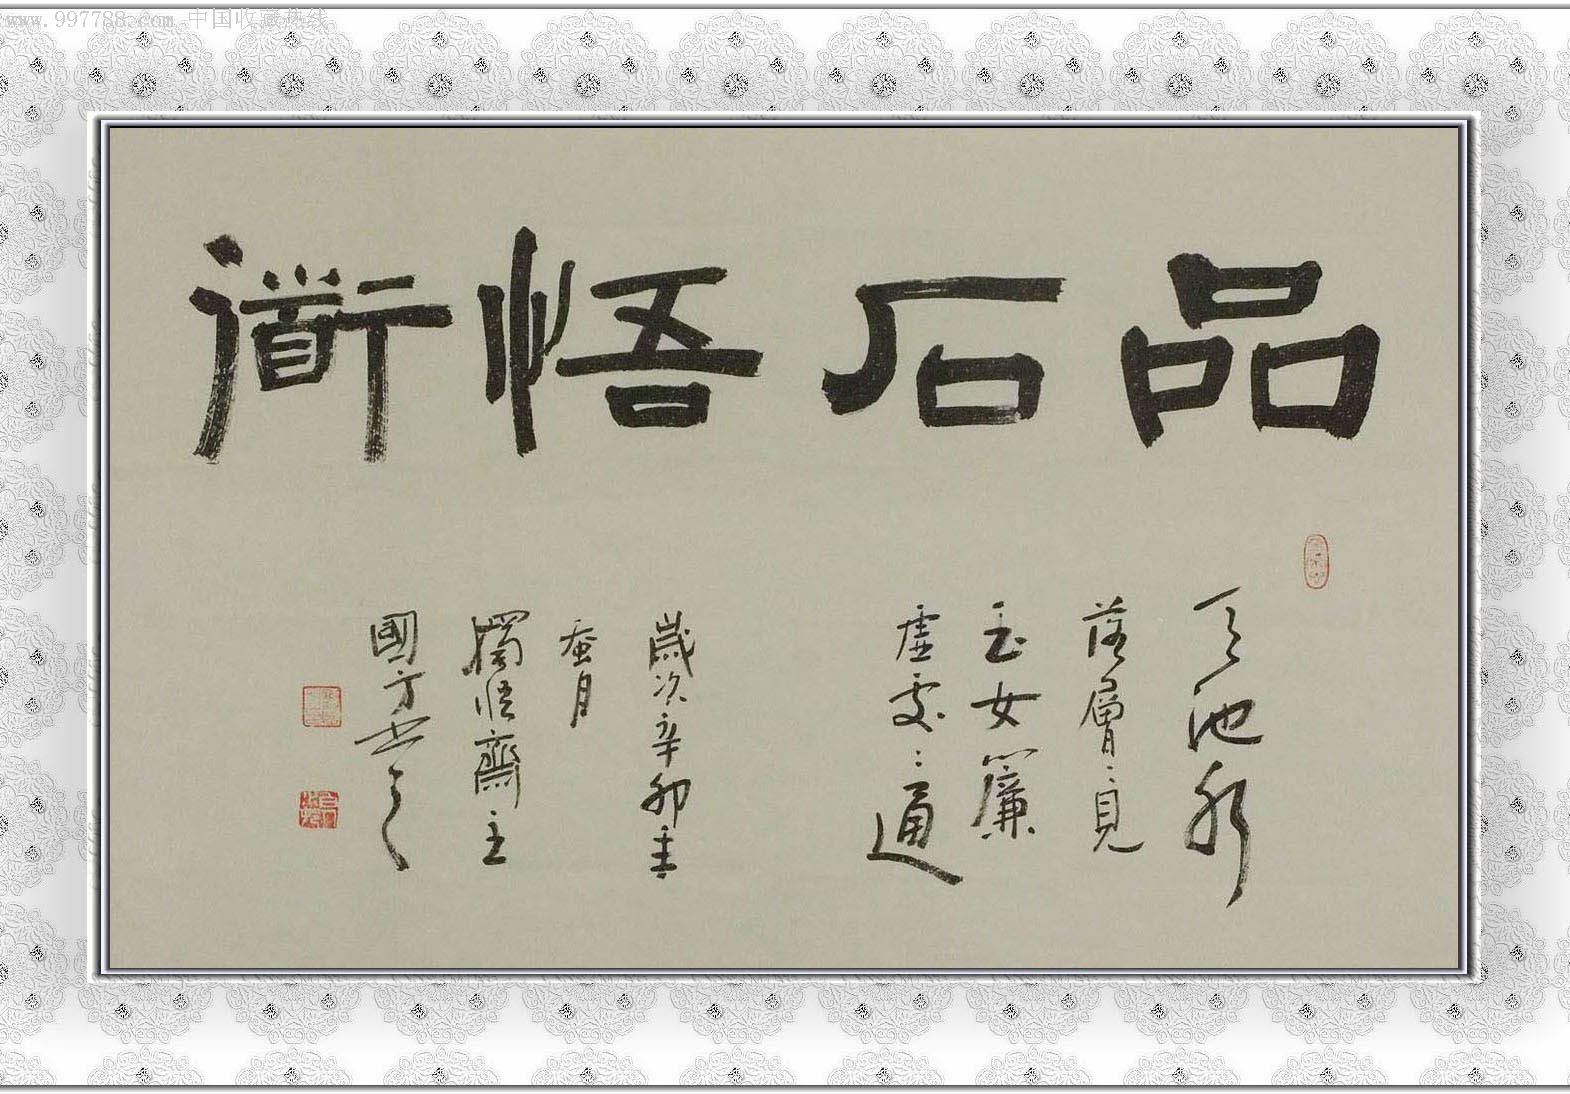 www.997788.com 中国收藏热线
品石悟衜
天池水
落層々見
玉女簾
虛處々通
歲次辛卯
蚕月
獨悟齋主
國方書之